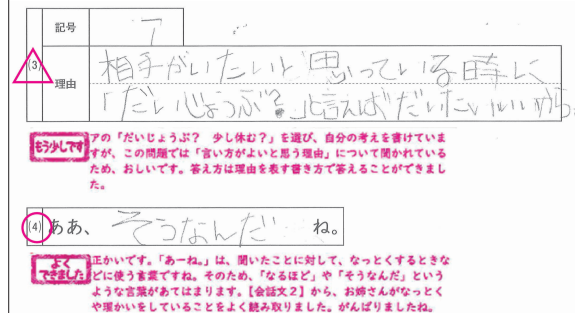 記号 ア
(3)
理由
相手がいたいと思っている時に
「だいじょうぶ?」と言えばだいたいいいから。
もう少しです
アの「だいじょうぶ? 少し休む?」を選び、自分の考えを書けていま
すが、この問題では「言い方がよいと思う理由」について聞かれている
ため、おしいです。答え方は理由を表す書き方で答えることができまし
た。
(4) ああ、 そうなんだ ね。
よく
できました
正かいです。「あーね。」は、聞いたことに対して、なっとくするときな
どに使う言葉ですね。そのため、「なるほど」や「そうなんだ」という
ような言葉があてはまります。【会話文2】から、お姉さんがなっとく
や理かいをしていることをよく読み取りました。がんばりましたね。